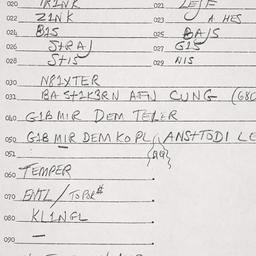 020 TR1NK 021 LEJF
022 Z1NK 023 A HES
024 B1S 025 BAJS
026 StRAJ 027 G1S
028 St1S 029 N1S
030 NP1XTER
031 BA St1K3RN AFN CUNG (680
040 G1B MIR DEM TELER
050 G1B MIR DEM KOPL, ANSTTODI LE
051
060 TEMPER
070 EMTL / TOPB#
080 KL1NGL
090